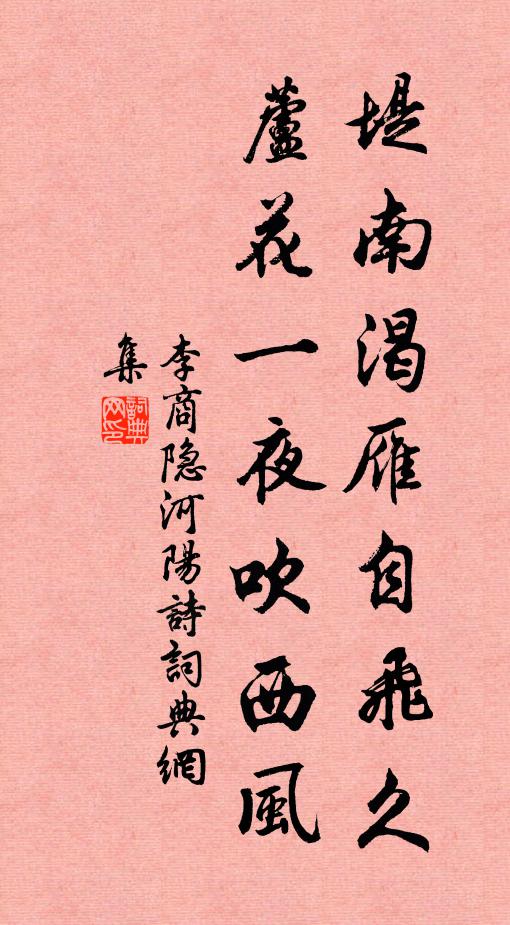 堤南渴雁自飛久
蘆花一夜吹西風
李商隐河陽詩詞典網
集
詞典
网印